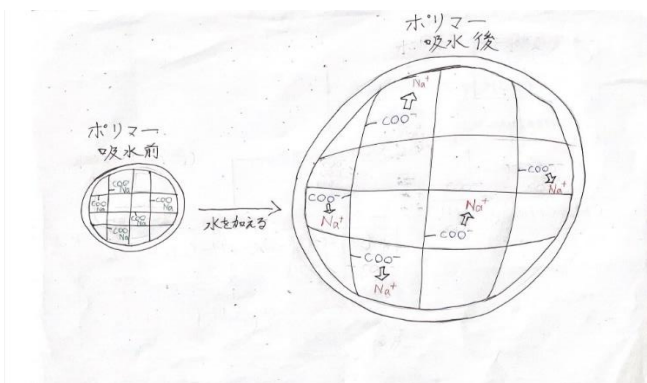 ポリマー
吸水前
COO
Na
COO
Na
COO
Na
COO
Na
COO
Na
水を加える
ポリマー
吸水後
Na⁺
COO⁻
COO⁻
Na⁺
COO⁻
Na⁺
Na⁺
COO⁻
COO⁻
Na⁺